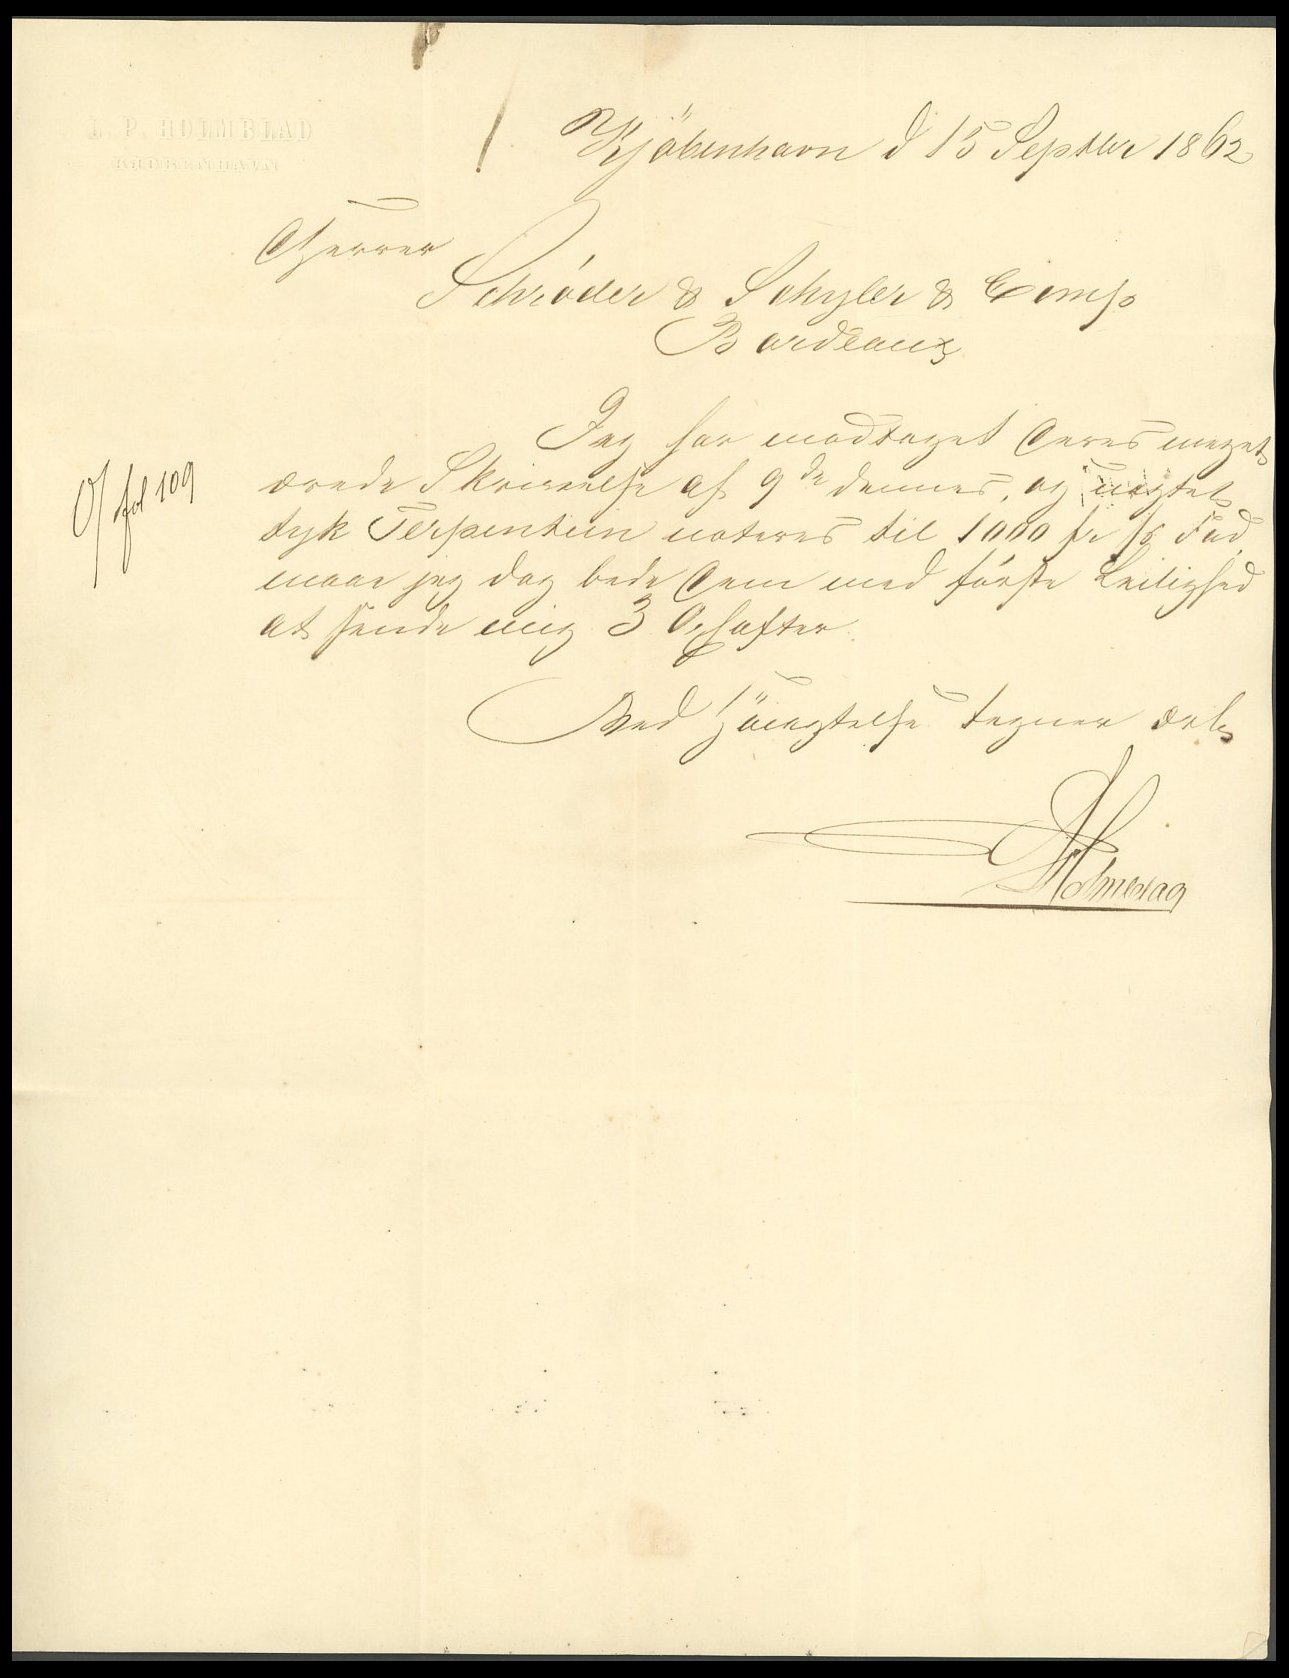 L. P. HOLMBLAD
KIÖBENHAVN
Kjöbenhavn d 15 Septbr 1862
Herrer
Schröder & Schyler & Comp
Bordeaux
Jeg har modtaget Deres meget
ærede Skrivelse af 9de dennes, og uagtet
tyk Terpentin noteres til 1000 fr pr Fad,
maae jeg dog bede Dem med förste Leilighed
at sende mig 3 Oxhofter.
O/ fol 109
Med Höiagtelse tegner ærb
LPHolmblad